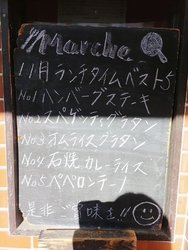 Marche
11月ランチタイムベスト5
No1ハンバーグステーキ
No2スパゲッティグラタン
No3オムライスグラタン
No4石焼カレーライス
No5ペペロンチーノ
是非ご賞味を!!